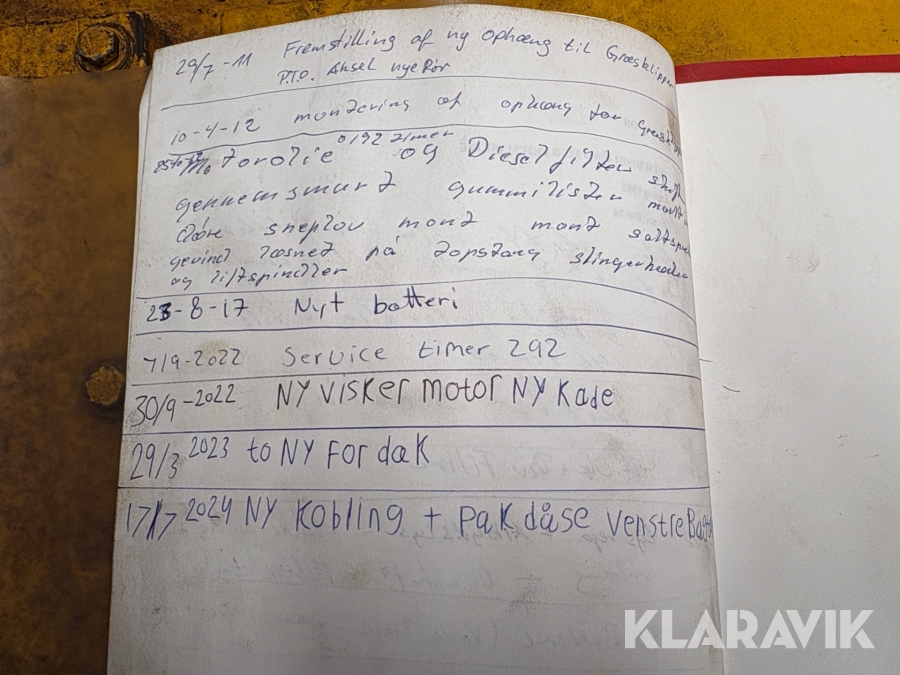 29/7-11 Fremstilling af ny ophæng til Græsklipper
P.T.O. Aksel nye Rør
10-4-12 montering af ophæng for
torolie 0192 timer og Diesel filter
gennemsmurt gummilister mont
sneplov mont mont
gevind løsnet på topstang
og liftspindler
23-8-17 Nyt batteri
7/9-2022 Service timer 292
30/9-2022 NY Visker motor NY Kade
29/3 2023 to NY For dæK
17/7 2024 NY Kobling + Pak dåse venstre Bag
KLARAVIK